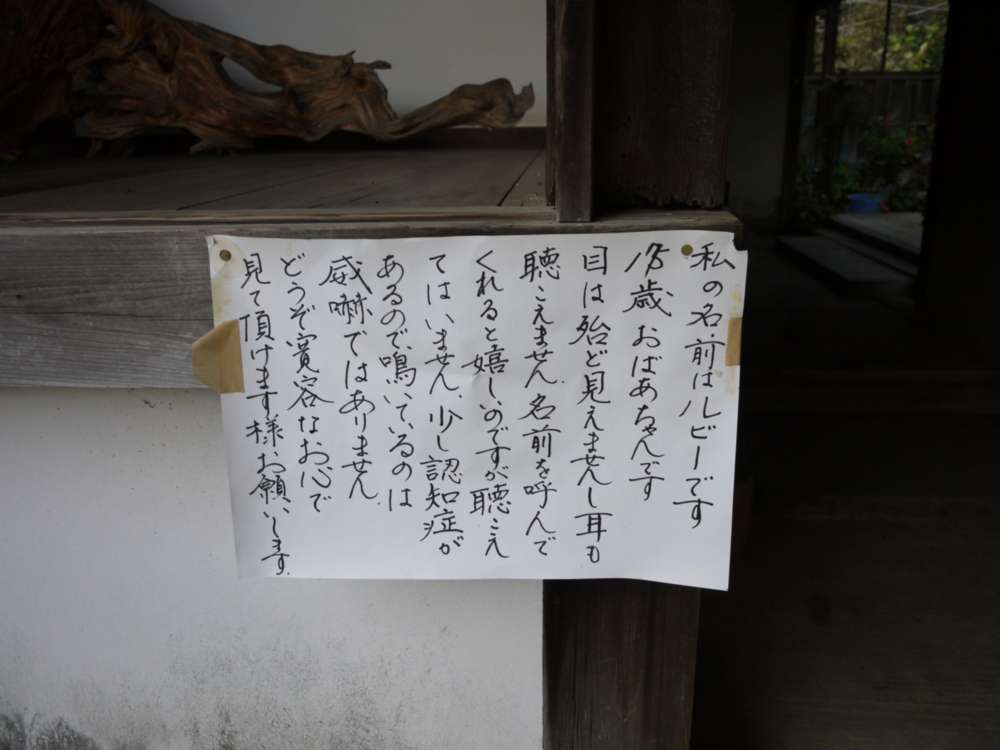 私の名前はルビーです
18歳おばあちゃんです
目は殆ど見えませんし耳も
聴こえません、名前を呼んで
くれると嬉しいのですが聴こえ
てはいません、少し認知症が
あるので、鳴いているのは
威嚇ではありません
どうぞ寛容なお心で
見て頂けます様、お願いします。